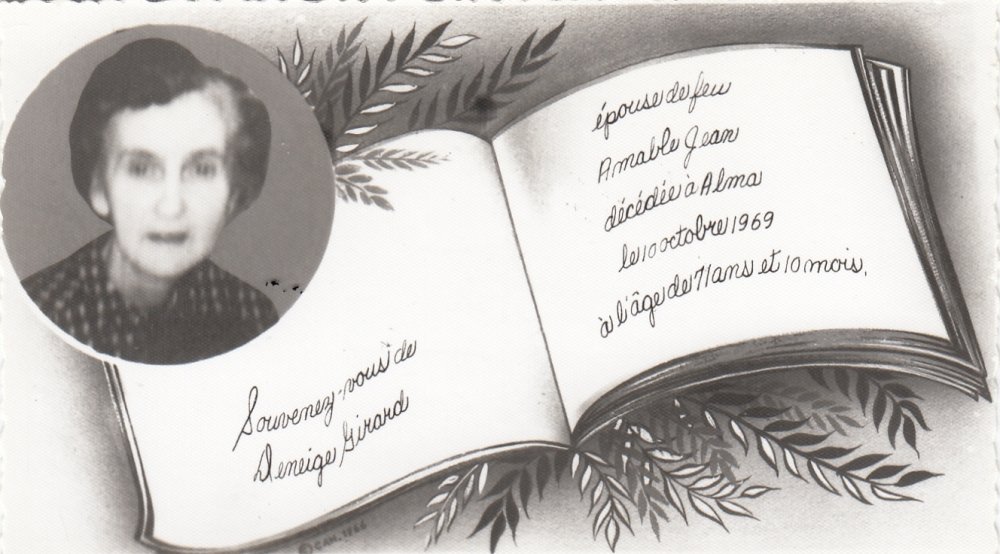 Souvenez-vous de
Deneige Girard
épouse de feu
Amable Jean
décédée à Alma
le 10 octobre 1969
à l'âge de 71 ans et 10 mois.
© CAN. 1966